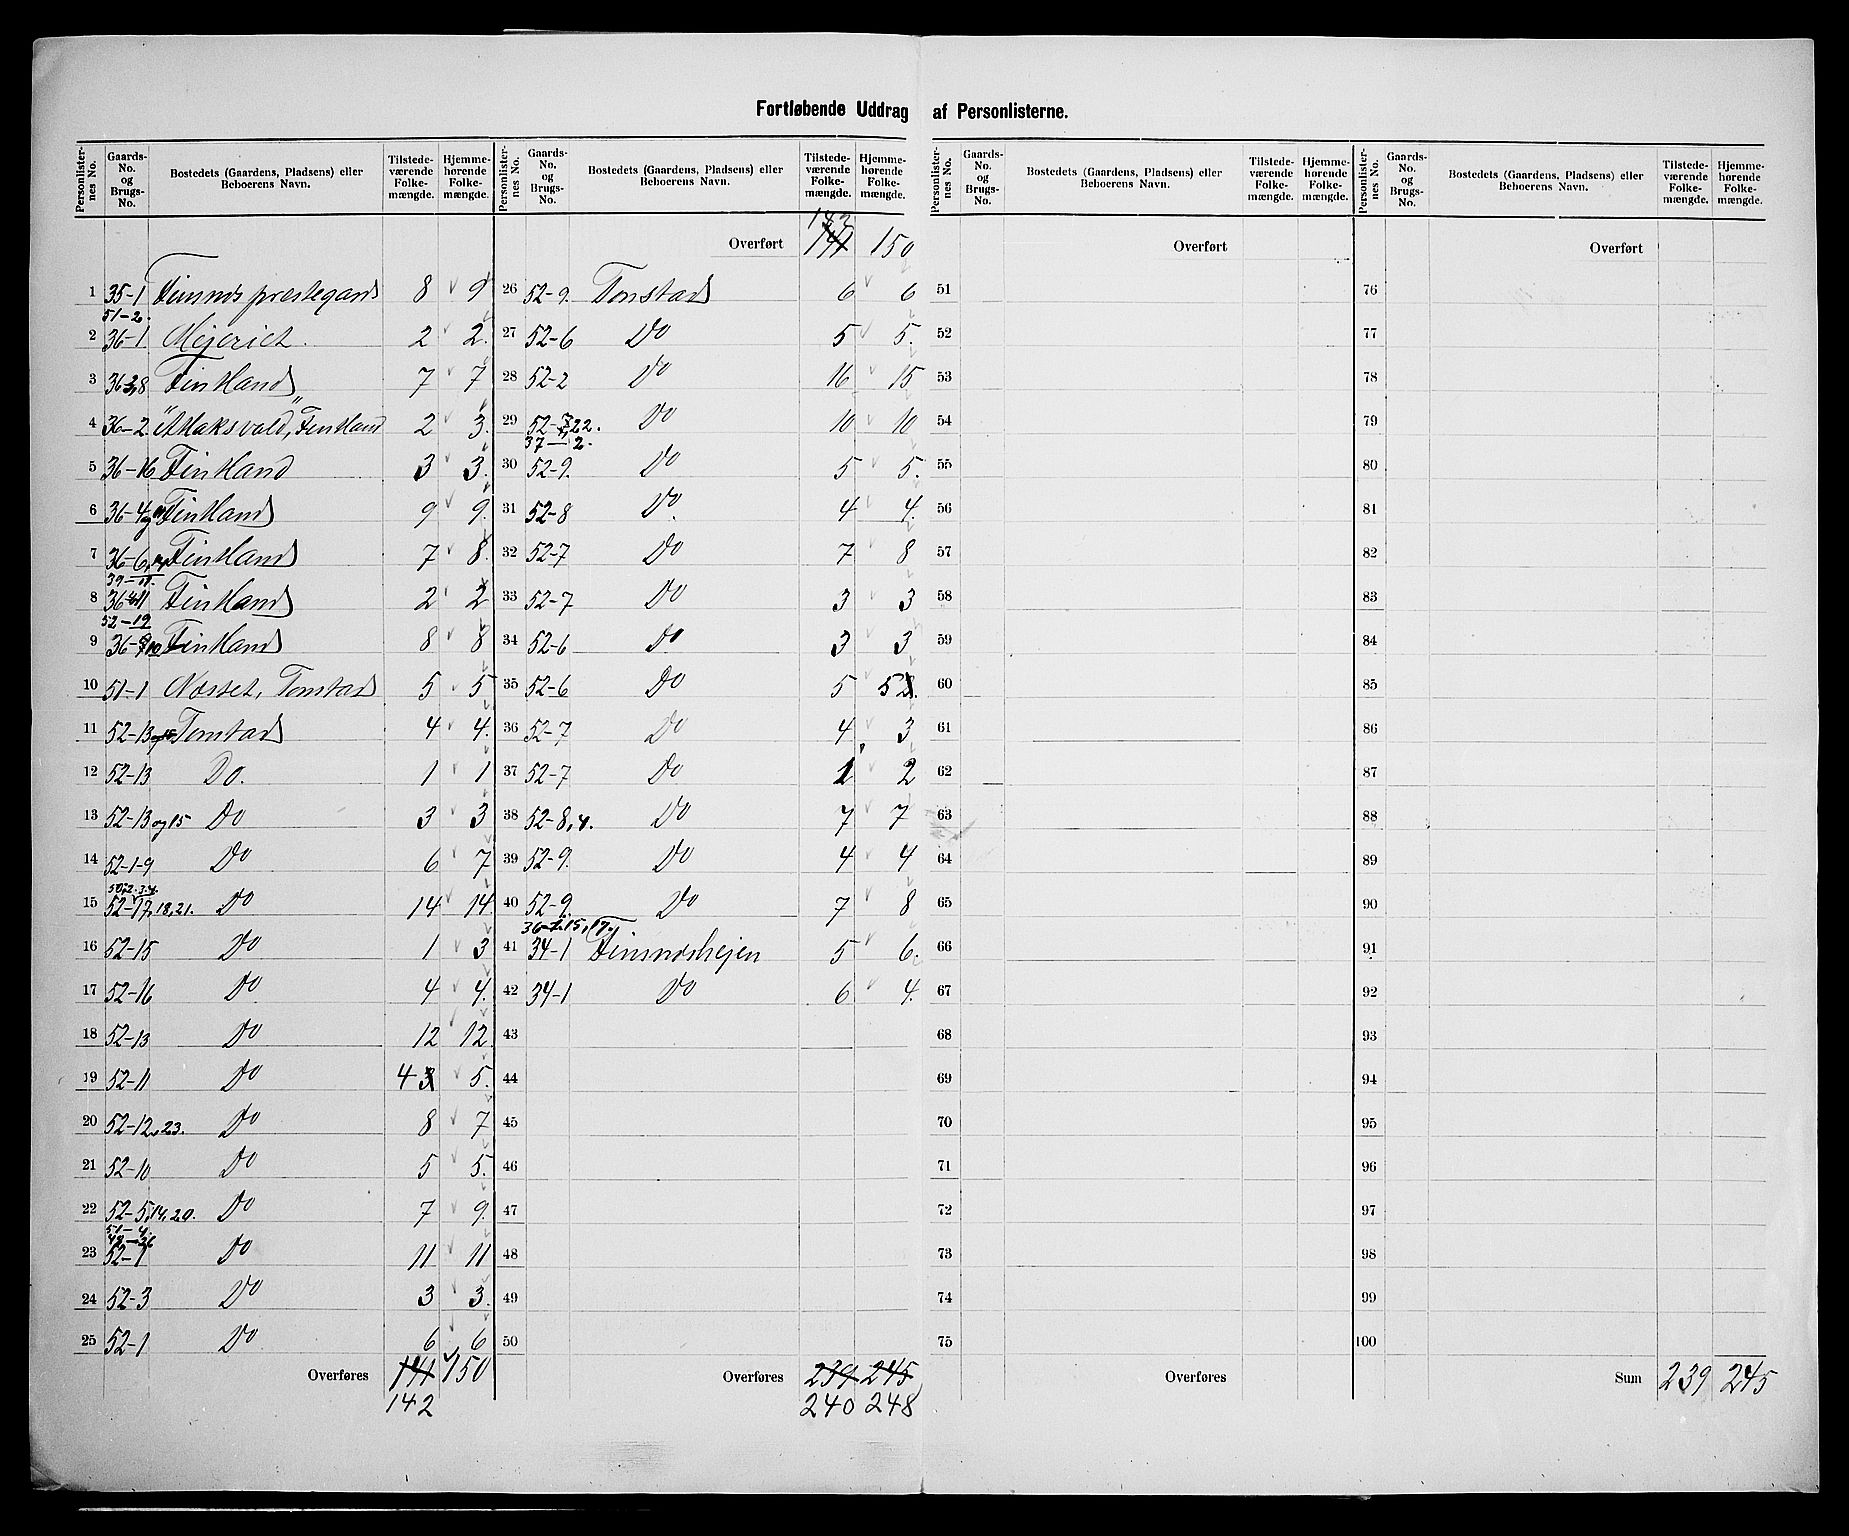 Fortløbende Uddrag af Personlisterne.
Personlister-nes No. | Gaards-No. og Brugs-No. | Bostedets (Gaardens, Pladsens) eller Beboerens Navn. | Tilstede-værende Folke-mængde. | Hjemme-hørende Folke-mængde.
1 35-1 Finsnds prestegard 8 9
51-2.
2 36-1 Mejeriet. 2 2.
3 36 3,8 Finkland 7 7
4 36-2. Finkland 2 3.
5 36-16 Finkland 3 3.
6 36-4 og Finkland 9 9.
7 36-6, Finkland 7 8.
39-11.
8 36 11 Finkland 2 2
52-19
9 36-9 10 Finkland 8 8
10 51-1 Nosset, Tonstad 5 5
11 52-13 og 15 Tonstad 4 4.
12 52-13 Do. 1 1
13 52-13 og 15 Do 3 3
14 52-1-9 Do 6 7
50, 2. 3. 4.
15 52-17, 18, 21. Do 14 14
16 52-15 Do 1 3
17 52-16 Do 4 4.
18 52-13 Do 12 12.
19 52-11 Do 4 3 5.
20 52-12, 23. Do 8 7
21 52-10 Do 5 5.
22 52-5, 14, 20. Do 7 9.
51-4.
42-36
23 52-1 Do 11 11
24 52-3 Do 3 3.
25 52-1 Do 6 6
Overføres 141 150
142
Personlister-nes No. | Gaards-No. og Brugs-No. | Bostedets (Gaardens, Pladsens) eller Beboerens Navn. | Tilstede-værende Folke-mængde. | Hjemme-hørende Folke-mængde.
142
Overført 141 150
26 52-9. Tonstad 6 6
27 52-6 Do 5 5.
28 52-2 Do 16 15
29 52- 22. Do 10 10
37-2.
30 52-9. Do 5 5.
31 52-8 Do. 4 4.
32 52-7 Do 7 8
33 52-7 Do 3 3
34 52-6 Do 3 3
35 52-6 Do 5 5
36 52-7 Do 4 3
37 52-7 Do 1 2
38 52-8, 4. Do 7 7
39 52-9. Do 4 4
40 52-9. Do 7 8
36-1. 15, 17.
41 34-1 Finsndshejen 5 6.
42 34-1 Do 6 4.
43
44
45
46
47
48
49
50
Overføres 239 245
240 248
Personlister-nes No. | Gaards-No. og Brugs-No. | Bostedets (Gaardens, Pladsens) eller Beboerens Navn. | Tilstede-værende Folke-mængde. | Hjemme-hørende Folke-mængde.
Overført
51
52
53
54
55
56
57
58
59
60
61
62
63
64
65
66
67
68
69
70
71
72
73
74
75
Overføres
Personlister-nes No. | Gaards-No. og Brugs-No. | Bostedets (Gaardens, Pladsens) eller Beboerens Navn. | Tilstede-værende Folke-mængde. | Hjemme-hørende Folke-mængde.
Overført
76
77
78
79
80
81
82
83
84
85
86
87
88
89
90
91
92
93
94
95
96
97
98
99
100
Sum 239 245